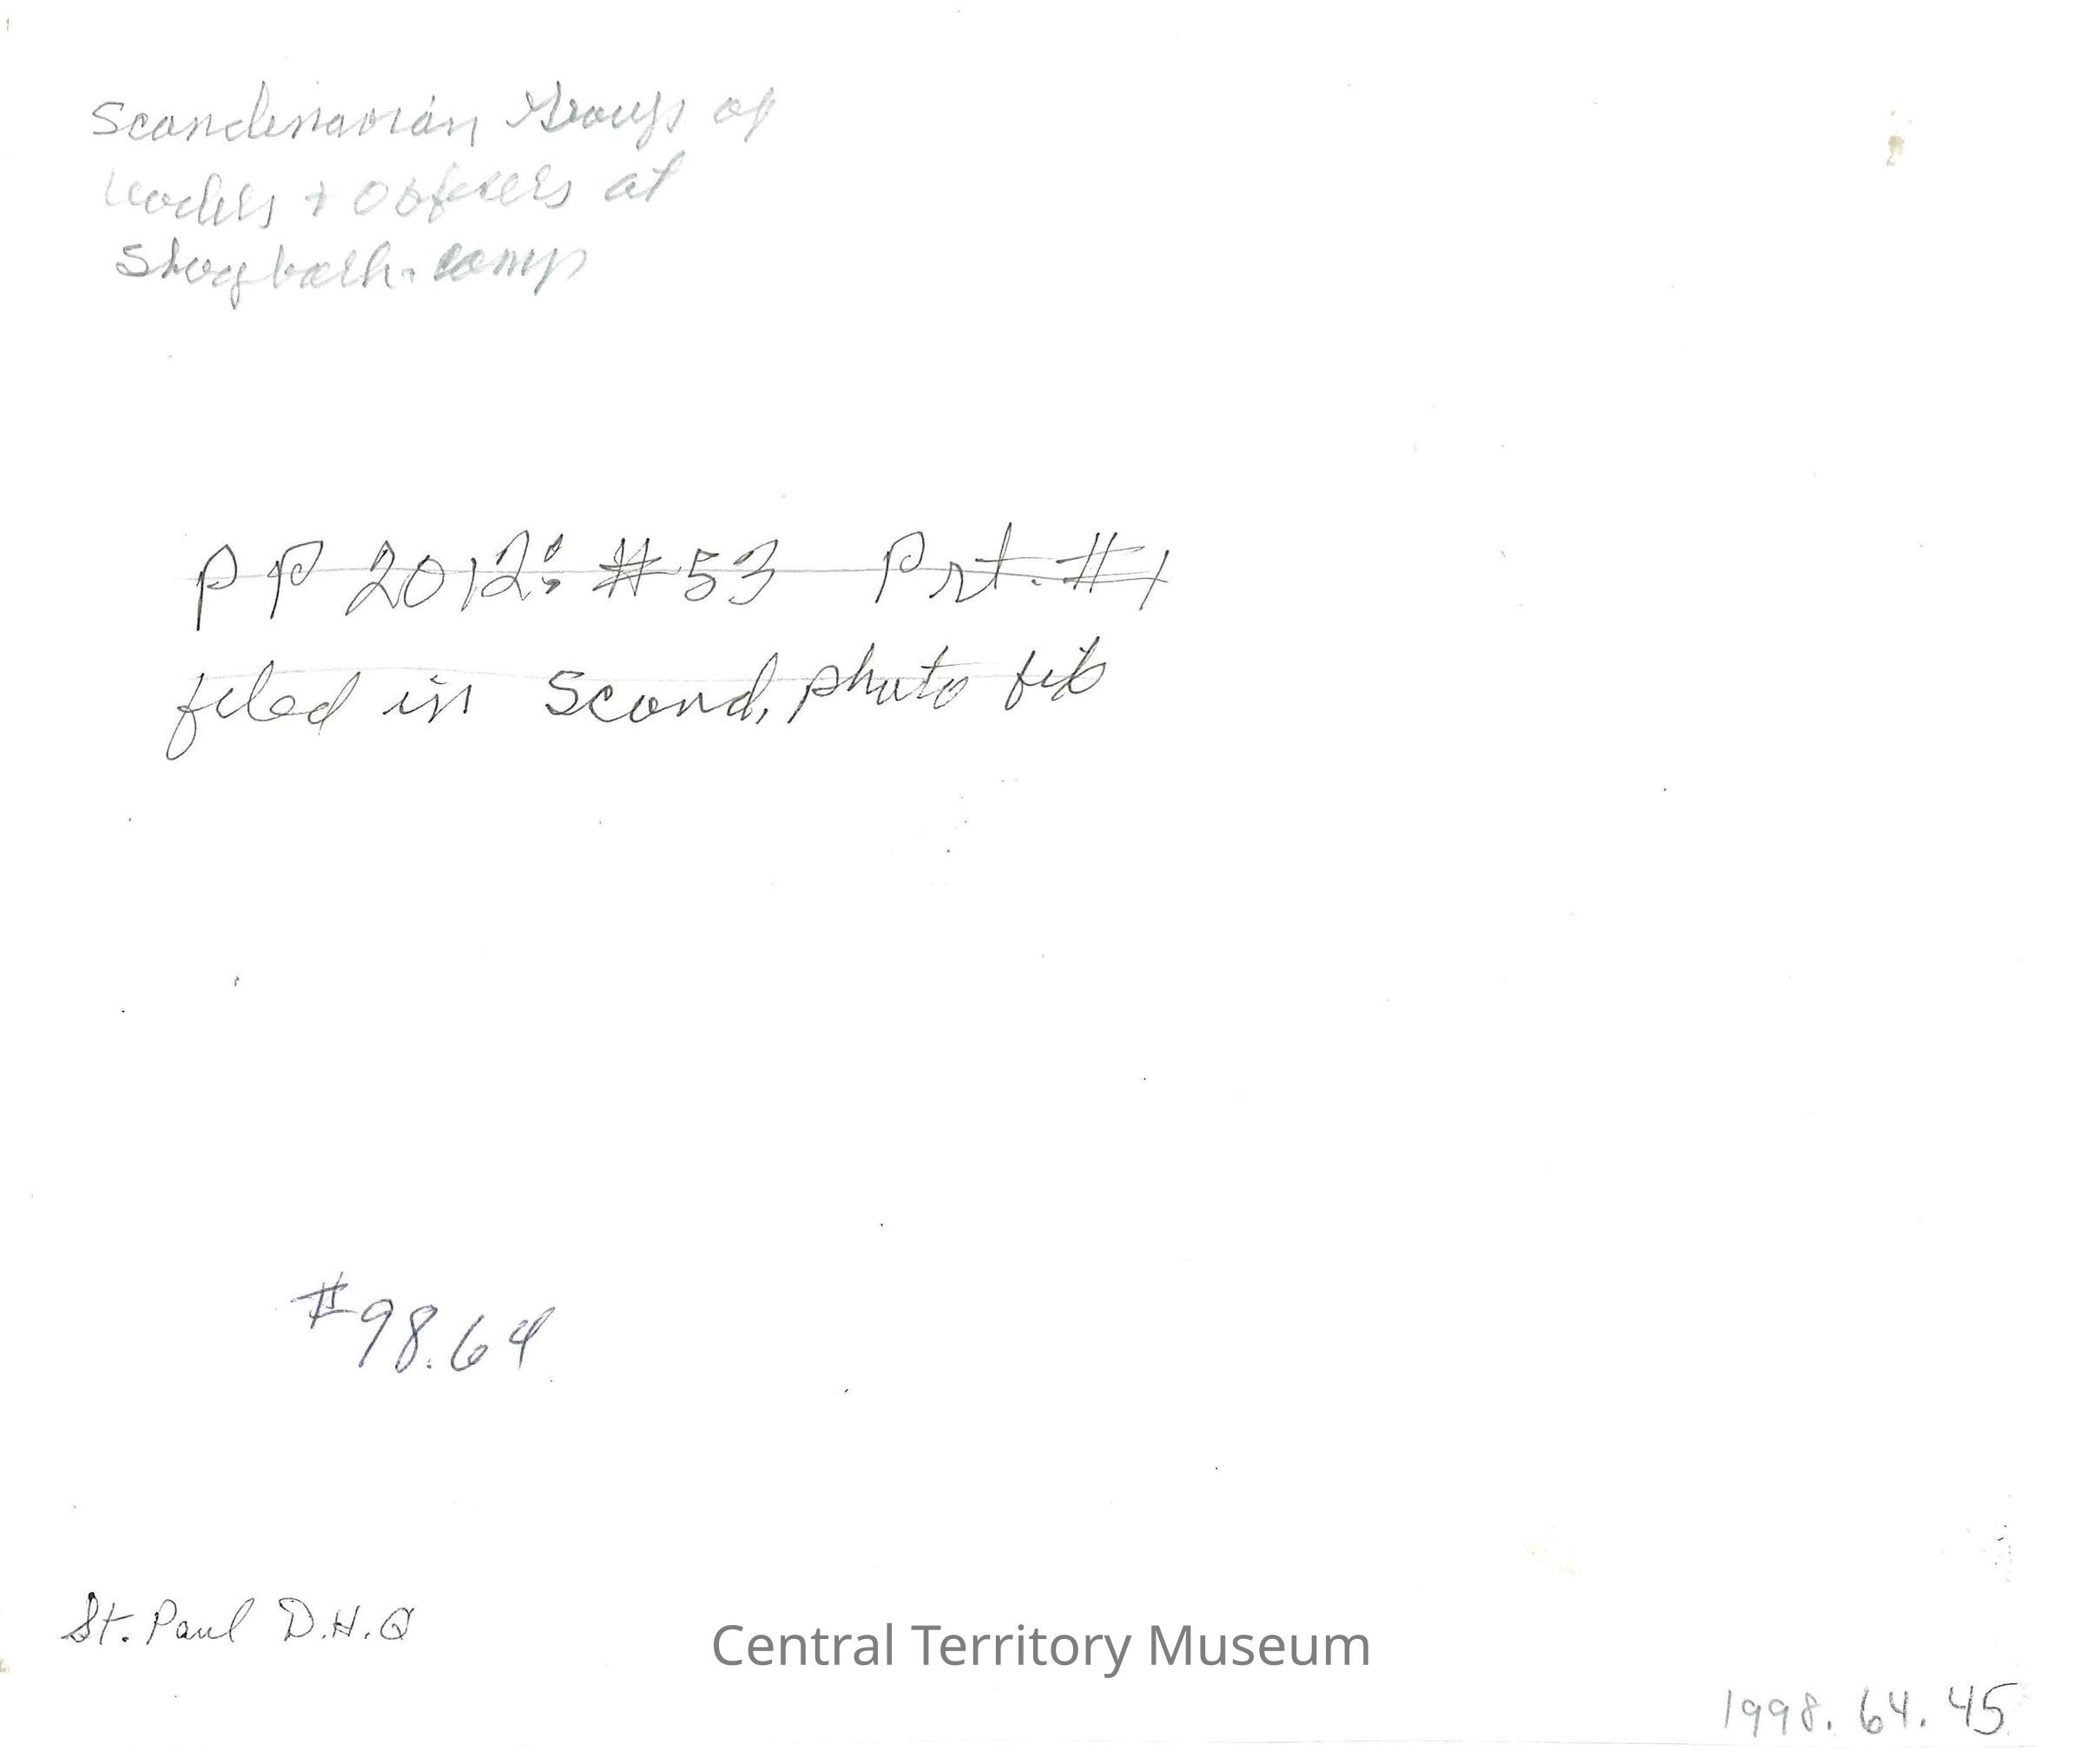 Scandinavian Group of
& Officers at
camp
PP 2012: #53 Prt. #1
filed in Scand. photo file
#98.64
St. Paul D.H.Q
Central Territory Museum
1998.64.45